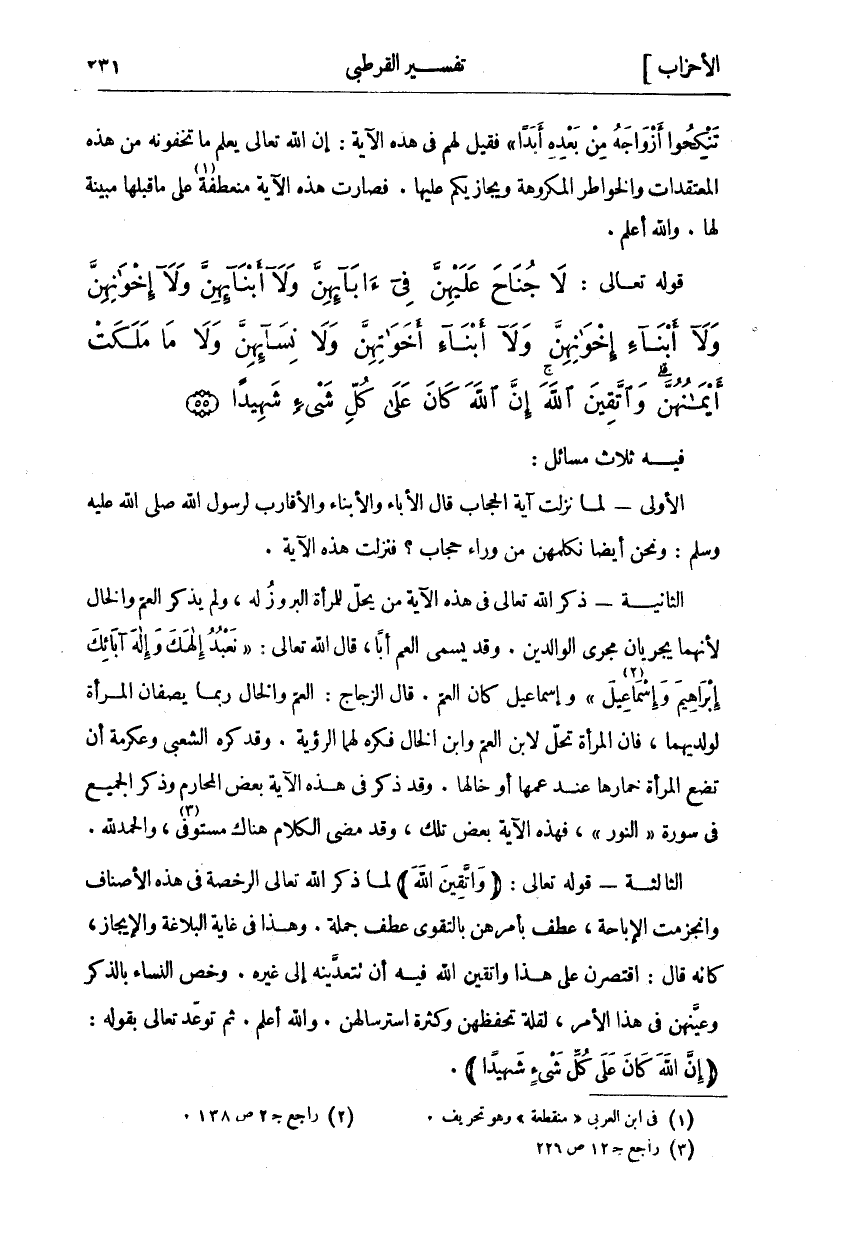 الأحزاب ] تفسير القرطبى ٢٣١
تَنْكِحُوا أَزْوَاجَهُ مِنْ بَعْدِهِ أَبَدًا» فقيل لهم فى هذه الآية : إن الله تعالى يعلم ما تخفونه من هذه
المعتقدات والخواطر المكروهة ويجازيكم عليها . فصارت هذه الآية منعطفة (١) على ماقبلها مبينة
لها . والله أعلم .
قوله تعالى : لَا جُنَاحَ عَلَيْهِنَّ فِىٓ ءَابَآئِهِنَّ وَلَآ أَبْنَآئِهِنَّ وَلَآ إِخْوَٰنِهِنَّ
وَلَآ أَبْنَآءِ إِخْوَٰنِهِنَّ وَلَآ أَبْنَآءِ أَخَوَٰتِهِنَّ وَلَا نِسَآئِهِنَّ وَلَا مَا مَلَكَتْ
أَيْمَٰنُهُنَّ ۗ وَٱتَّقِينَ ٱللَّهَ ۚ إِنَّ ٱللَّهَ كَانَ عَلَىٰ كُلِّ شَىْءٍ شَهِيدًا ﴿٥٥﴾
فيه ثلاث مسائل :
الأولى — لما نزلت آية الحجاب قال الأباء والأبناء والأقارب لرسول الله صلى الله عليه
وسلم : ونحن أيضا نكلمهن من وراء حجاب ؟ فنزلت هذه الآية .
الثانية — ذكر الله تعالى فى هذه الآية من يحلّ للمرأة البروزُ له ، ولم يذكر العم والخال
لأنهما يجريان مجرى الوالدين . وقد يسمى العم أبًا ، قال الله تعالى : « نَعْبُدُ إِلٰهَكَ وَإِلٰهَ آبَائِكَ
إِبْرَاهِيمَ وَإِسْمَاعِيلَ (٢) » وإسماعيل كان العم . قال الزجاج : العم والخال ربما يصفان المرأة
لولديهما ، فان المرأة تحلّ لابن العم وابن الخال فكره لهما الرؤية . وقد كره الشعبى وعكرمة أن
تضع المرأة خمارها عند عمها أو خالها . وقد ذكر فى هذه الآية بعض المحارم وذكر الجميع
فى سورة « النور » ، فهذه الآية بعض تلك ، وقد مضى الكلام هناك مستوفًى (٣) ، والحمدلله .
الثالثة — قوله تعالى : ﴿ وَاتَّقِينَ اللَّهَ ﴾ لما ذكر الله تعالى الرخصة فى هذه الأصناف
وانجزمت الإباحة ، عطف بأمرهن بالتقوى عطف جملة . وهذا فى غاية البلاغة والإيجاز ،
كانه قال : اقتصرن على هذا واتقين الله فيه أن تتعدَّينه إلى غيره . وخص النساء بالذكر
وعيَّنهن فى هذا الأمر ، لقلة تحفظهن وكثرة استرسالهن . والله أعلم . ثم توعّد تعالى بقوله :
﴿ إِنَّ اللَّهَ كَانَ عَلَى كُلِّ شَىْءٍ شَهِيدًا ﴾ .
(١) فى ابن العربى « منقطعة » وهو تحريف . (٢) راجع جـ ٢ ص ١٣٨ .
(٣) راجع جـ ١٢ ص ٢٢٦